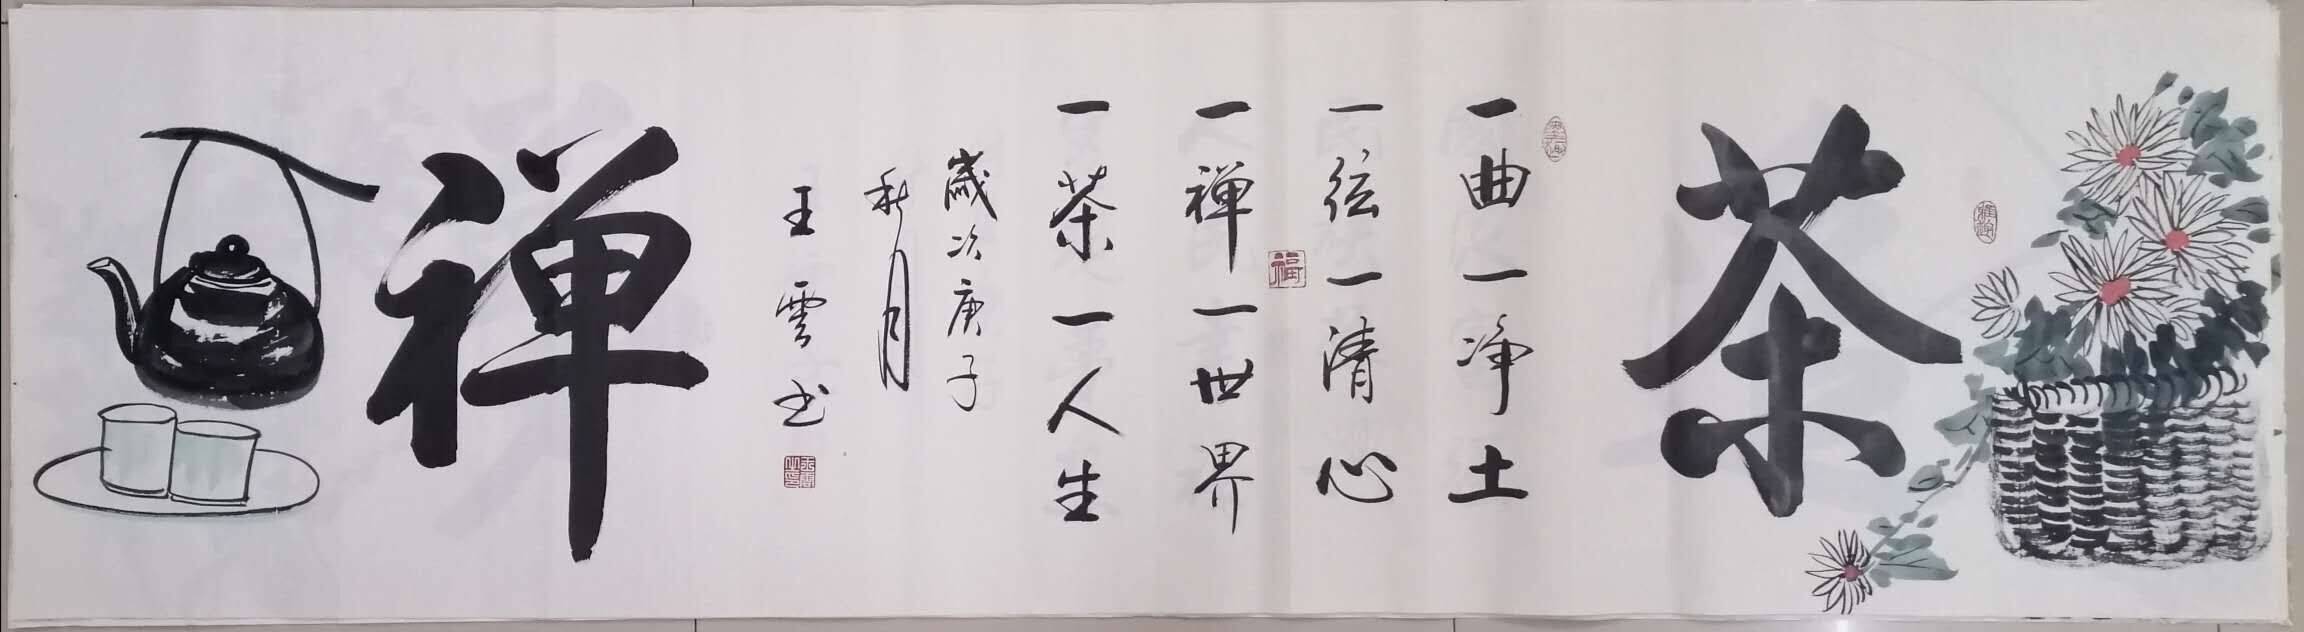 茶
一曲一净土
一弦一清心
一禅一世界
一茶一人生
歲次庚子
秋月
王雲书
禅
福